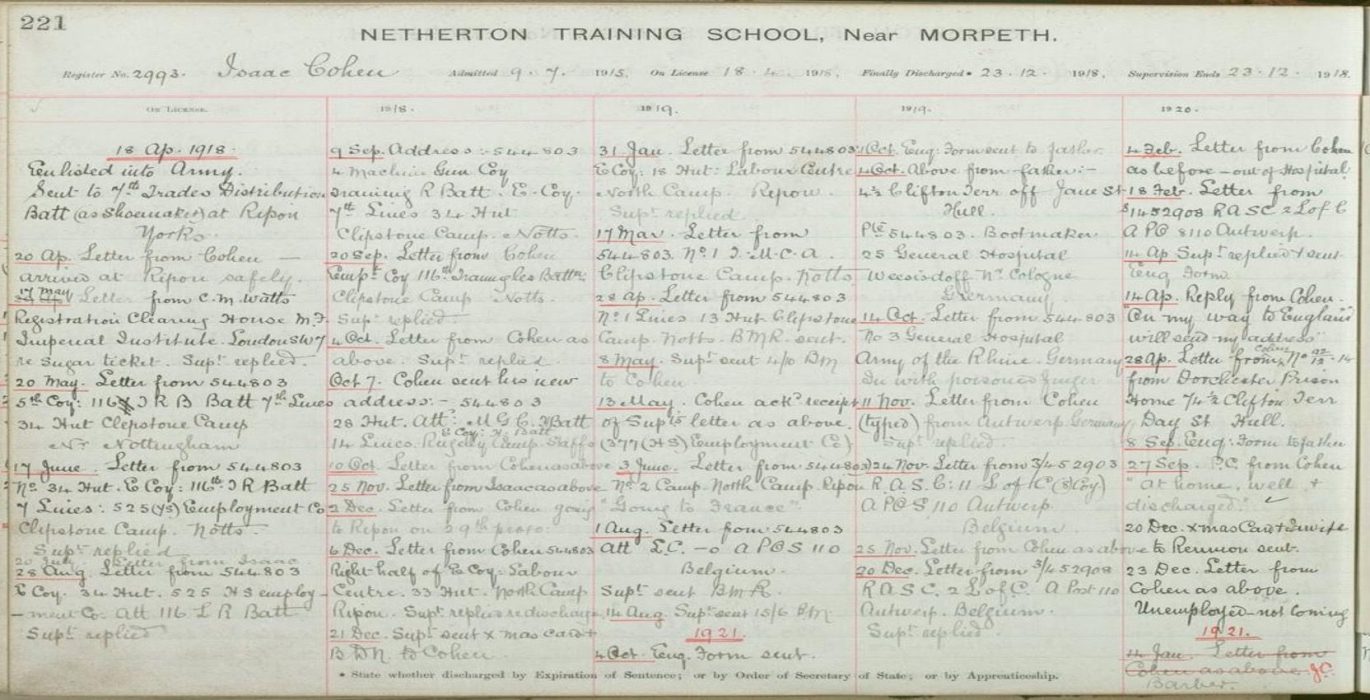 221
NETHERTON TRAINING SCHOOL, Near MORPETH.
Register No. 2993. Isaac Cohen Admitted 9 . 7 . 1915. On License 18 . 4 . 1918. Finally Discharged* 23 . 12 . 1918. Supervision Ends 23 . 12 . 1918.
ON LICENSE.
18 Ap. 1918.
Enlisted into Army.
Sent to 7th Trades Distribution
Batt (as Shoemaker) at Ripon
Yorks.
20 Ap. Letter from Cohen —
arrived at Ripon safely.
17 May
Letter from C. M. Watts
Registration Clearing House M.F.
Imperial Institute. London SW7
re Sugar ticket. Supt. replied.
20 May. Letter from 544803
5th Coy: 116 I R B Batt 7th Lines
34 Hut Clepstone Camp
Nr Nottingham
17 June. Letter from 544803
No. 34 Hut. E Coy: 116th I R Batt
7 Lines: 525 (HS) Employment Co
Clipstone Camp. Notts.
Supt replied
20 July Letter from Isaac
28 Aug. Letter from 544803
E Coy. 34 Hut. 525 HS employ-
-ment Co. Att 116 L R Batt
Supt replied
1918.
9 Sep. Address :- 544803
4 Machine Gun Coy
Training R Batt. E. Coy.
7th Lines 34 Hut
Clipstone Camp. Notts.
20 Sep. Letter from Cohen
Empt Coy 116th
Clipstone Camp Notts.
Supt replied
4 Oct. Letter from Cohen as
above. Supt replied.
Oct 7. Cohen sent his new
address :- 544803
28 Hut. Att: M G C. Batt
E Coy: H. Batt
14 Lines. Rugeley Camp. Staffs
10 Oct. Letter from Cohen as above
25 Nov. Letter from Isaac as above
2 Dec. Letter from Cohen going
to Ripon on 29th
6 Dec. Letter from Cohen 544803
Right half of E Coy: Labour
Centre. 33 Hut. North Camp
Ripon. Supt replies re discharge
21 Dec. Supt sent Xmas card +
B D N. to Cohen
1919.
31 Jan. Letter from 544803
E Coy: 18 Hut: Labour Centre
North Camp. Ripon.
Supt replied.
17 Mar. Letter from
544803. No. 1 Y. M. C. A.
Clipstone Camp. Notts.
28 Ap. Letter from 544803
No. 1 Lines 13 Hut Clipstone
Camp. Notts. B M R. sent.
8 May. Supt sent 4/0 B M
to Cohen
13 May. Cohen ackd receipt
of Supts letter as above.
(377 (HS) Employment C)
3 June. Letter from 544803
No. 2 Camp. North Camp. Ripon
"Going to France"
1 Aug. Letter from 544803
att L. C. — o A P O S 110
Belgium.
Supt sent B M R.
14 Aug. Supt sent 15/6 B M.
1921.
4 Oct. Enq. Form sent.
1919.
1 Oct. Enq. Form sent to father
4 Oct. Above from father :-
4½ Clifton Terr off Jane St
Hull.
Pte 544803. Bootmaker
25 General Hospital
Weesisdoff Nr. Cologne
Germany
14 Oct. Letter from 544803
No 3 General Hospital
Army of the Rhine. Germany
In with poisoned finger
11 Nov. Letter from Cohen
(typed) from Antwerp Germany
Supt replied.
24 Nov. Letter from S/452903
R. A. S. C: 11 L of C (3 Coy)
A P O S 110 Antwerp
Belgium
25 Nov. Letter from Cohen as above
20 Dec. Letter from S/452908
R A S C. 2 L of C. A Post 110
Antwerp. Belgium.
Supt replied.
1920.
4 Feb. Letter from Cohen
as before — out of Hospital
18 Feb. Letter from
S/452908 R A S C 2 L of C
A P O S 110 Antwerp.
11 Ap Supt replied & sent
Enq Form.
14 Ap. Reply from Cohen.
"On my way to England
will send my address"
28 Ap. Letter from Cohen No.
from Dorchester Prison
Home 7/4½ Clifton Terr
Day St Hull.
8 Sep. Enq: Form to father
27 Sep. P.C. from Cohen
"at home, well, +
discharged." ✓
20 Dec. Xmas Card + Invite
to Reunion sent.
23 Dec. Letter from
Cohen as above.
Unemployed — not coming
1921.
11 Jan. Letter from
Cohen as above J C.
Barber.
* State whether discharged by Expiration of Sentence; or by Order of Secretary of State; or by Apprenticeship.